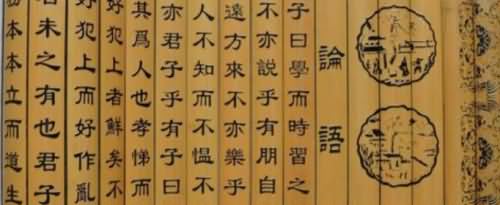 論語
子曰學而時習之
不亦說乎有朋自
遠方來不亦樂乎
人不知而不慍不
亦君子乎有子曰
其爲人也孝悌而
好犯上者鮮矣不
好犯上而好作亂
者未之有也君子
務本本立而道生